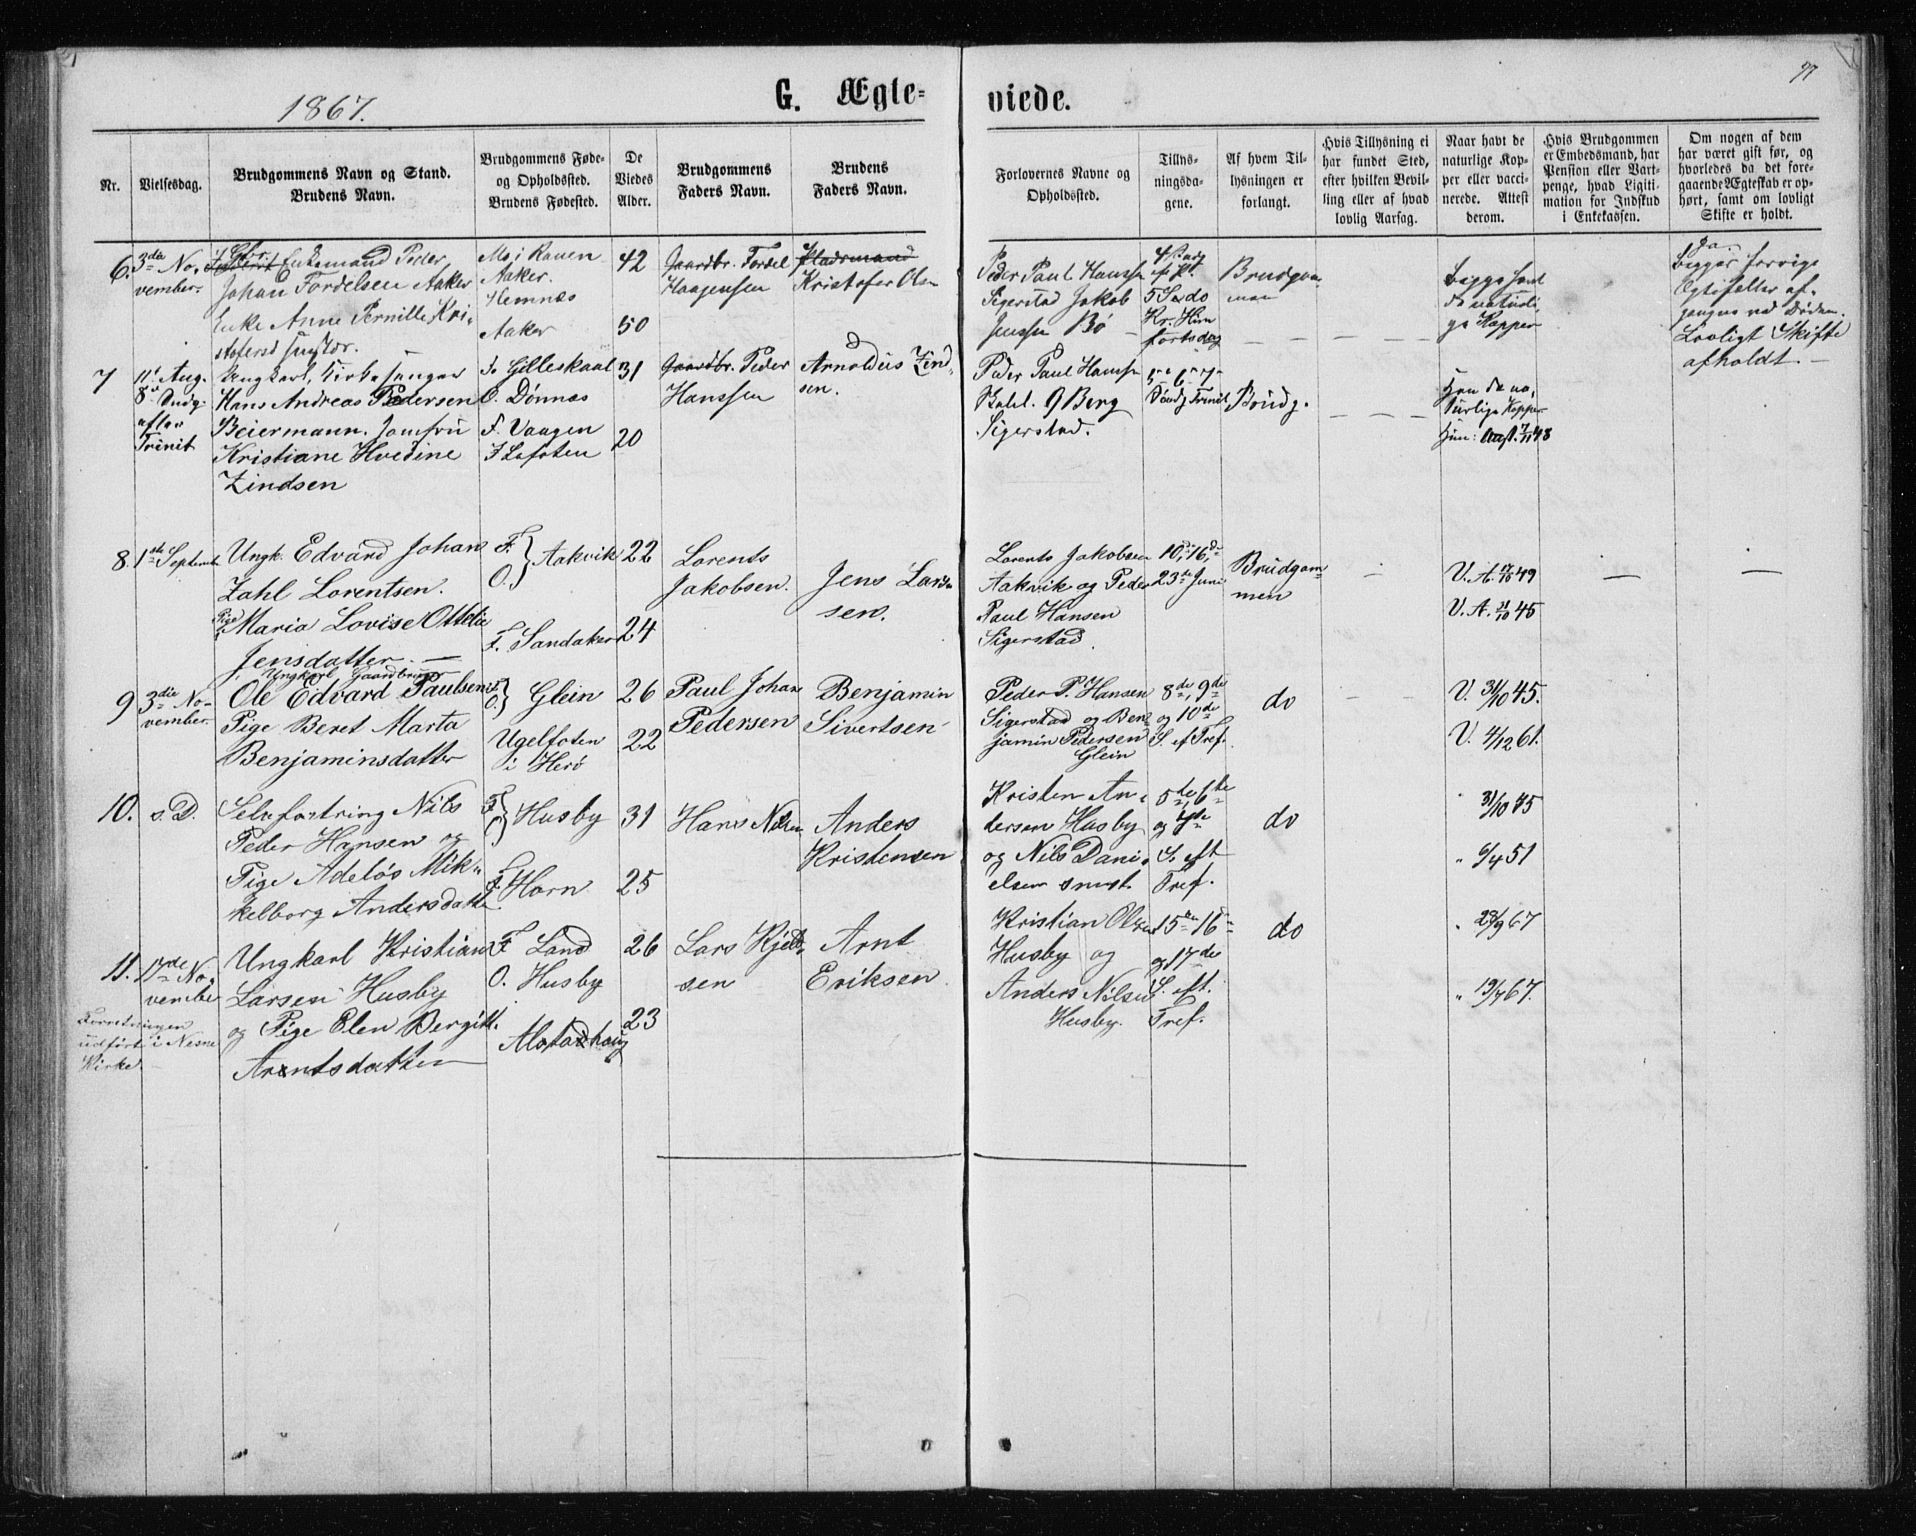 1867.
G. Ægte-
viede.
77
Nr.
Vielsesdag.
Brudgommens Navn og Stand.
Brudens Navn.
Brudgommens Føde-
og Opholdssted.
Brudens Fødested.
De
Viedes
Alder.
Brudgommens
Faders Navn.
Brudens
Faders Navn.
Forlovernes Navne og
Opholdssted.
Tillys-
ningsda-
gene.
Af hvem Til-
lysningen er
forlangt.
Hvis Tillysning ei
har fundet Sted,
efter hvilken Bevil-
ling eller af hvad
lovlig Aarsag.
Naar havt de
naturlige Kop-
per eller vacci-
nerede. Attest
derom.
Hvis Brudgommen
er Embedsmand, har
Pension eller Vart-
penge, hvad Ligiti-
mation for Indskud
i Enkekassen.
Om nogen af dem
har været gift før, og
hvorledes da det fore-
gaaende Ægteskab er op-
hørt, samt om lovligt
Skifte er holdt.
6. 3die No-
vember.
Gbr. Enkemand Peder
Johan Fordelsen Aaker
Enke Anne Pernille Kri-
stofersd
Mo i Ranen
Aaker.
Hemnæs
Aaker
42
50
Gaardbr. Fordel
Haagensen
Pladsmand
Kristofer Olsen
Peder Paul Hanssen
Sigerstad Jakob
Jenssen Bø
5 S do
Brudgom
men
Begge havt
de naturli
ge Kopper
Ja.
Begges forrige
Ægtefeller af-
gangne ved Døden.
Lovligt Skifte
afholdt. —
7
11te Aug.
8de Søndg.
efter
Trinit
Ungkarl, Kirkesanger
Hans Andreas Pedersen
Beiermann. Jomfru
Kristiane Hvedine
Zindsen
F. Gilleskaal
O. Dønnæs
F. Vaagen
I Lofoten
31
20
Gaardbr. Peder
Hanssen
Arnoldus Zind
sen.
Peder Paul Hanssen
Berg
Sigerstad.
5te 6te 7de
Søndg Trinit
Brudg.
Han de na,
turlige Kopper
Hun: Attst. 7/11 48
8. 1ste September
Ungk. Edvard Johan
Zahl Lorentsen.
Pige Maria Lovise Ottelie
Jensdatter. —
F.
O. } Aakvik
F. Sandaker
22
24
Lorents
Jakobsen.
Jens Lar
sen.
Lorents Jakobsen
Aakvik og Peder
Paul Hansen
Sigerstad
10de, 16de
23de Juni
Brudgom-
men
V. A. 49
V. A. 21/10 45
9 3die No-
vember.
Ungkarl Gaardbruger
Ole Edvard Paulsen
Pige Beret Marta
Benjaminsdatter
F.
O. } Glein
Ugelfoten
i Herø
26
22
Paul Johan
Pedersen
Benjamin
Sivertsen
Peder P. Hansen
Sigerstad og Ben
jamin Pedersen
Glein
8de, 9de
og 10de
S. ef Tref.
do
V. 31/10 45.
V. 4/12 61.
10. s. D.
Selvfostring Nils
Peder Hansen og
Pige Adelós Mik-
kelborg Andersdatter
F.
O } Husby
F. Horn
31
25
Hans Nilsen
Anders
Kristensen
Kristen An-
dersen Husby
og Nils Dani-
elsen smst.
5te, 6te
og 7de
S. eft
Tref.
do
" 31/10 45
" 6/7 51
11. 17de No-
vember
Forretningen
udført i Nesne
Kirke.
Ungkarl Kristian
Larsen Husby
og Pige Elen Bergitt.
Arntsdatter
F. Land
O. Husby
Alstadhoug
26
23
Lars Kjeld-
sen
Arnt
Eriksen
Kristian Olsen
Husby og
Anders Nilsen
Husby.
15de 16de
og 17de
S. eft.
Tref.
do
" 28/9 67
" 19/7 67.